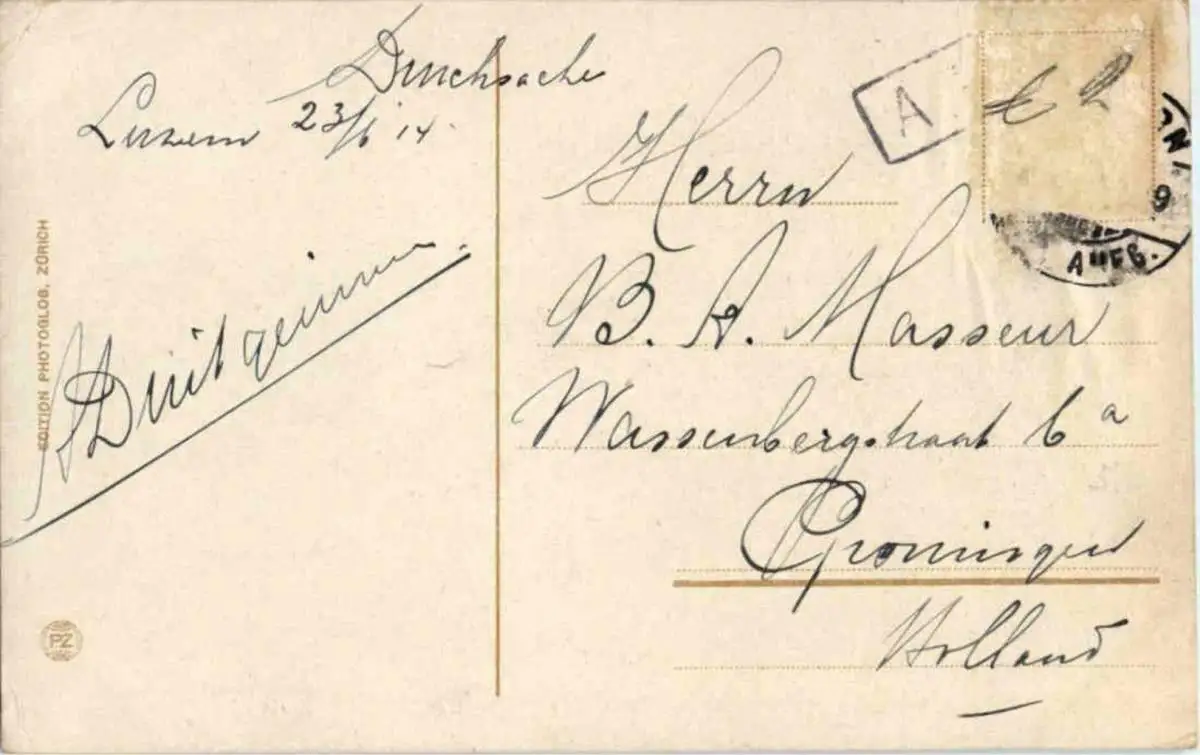 Drucksache
Luzern 23/6 14.
EDITION PHOTOGLOB, ZÜRICH
PZ
A
Herrn
B. A. Masseur
Wassenbergstraat 6a
Groningen
Holland